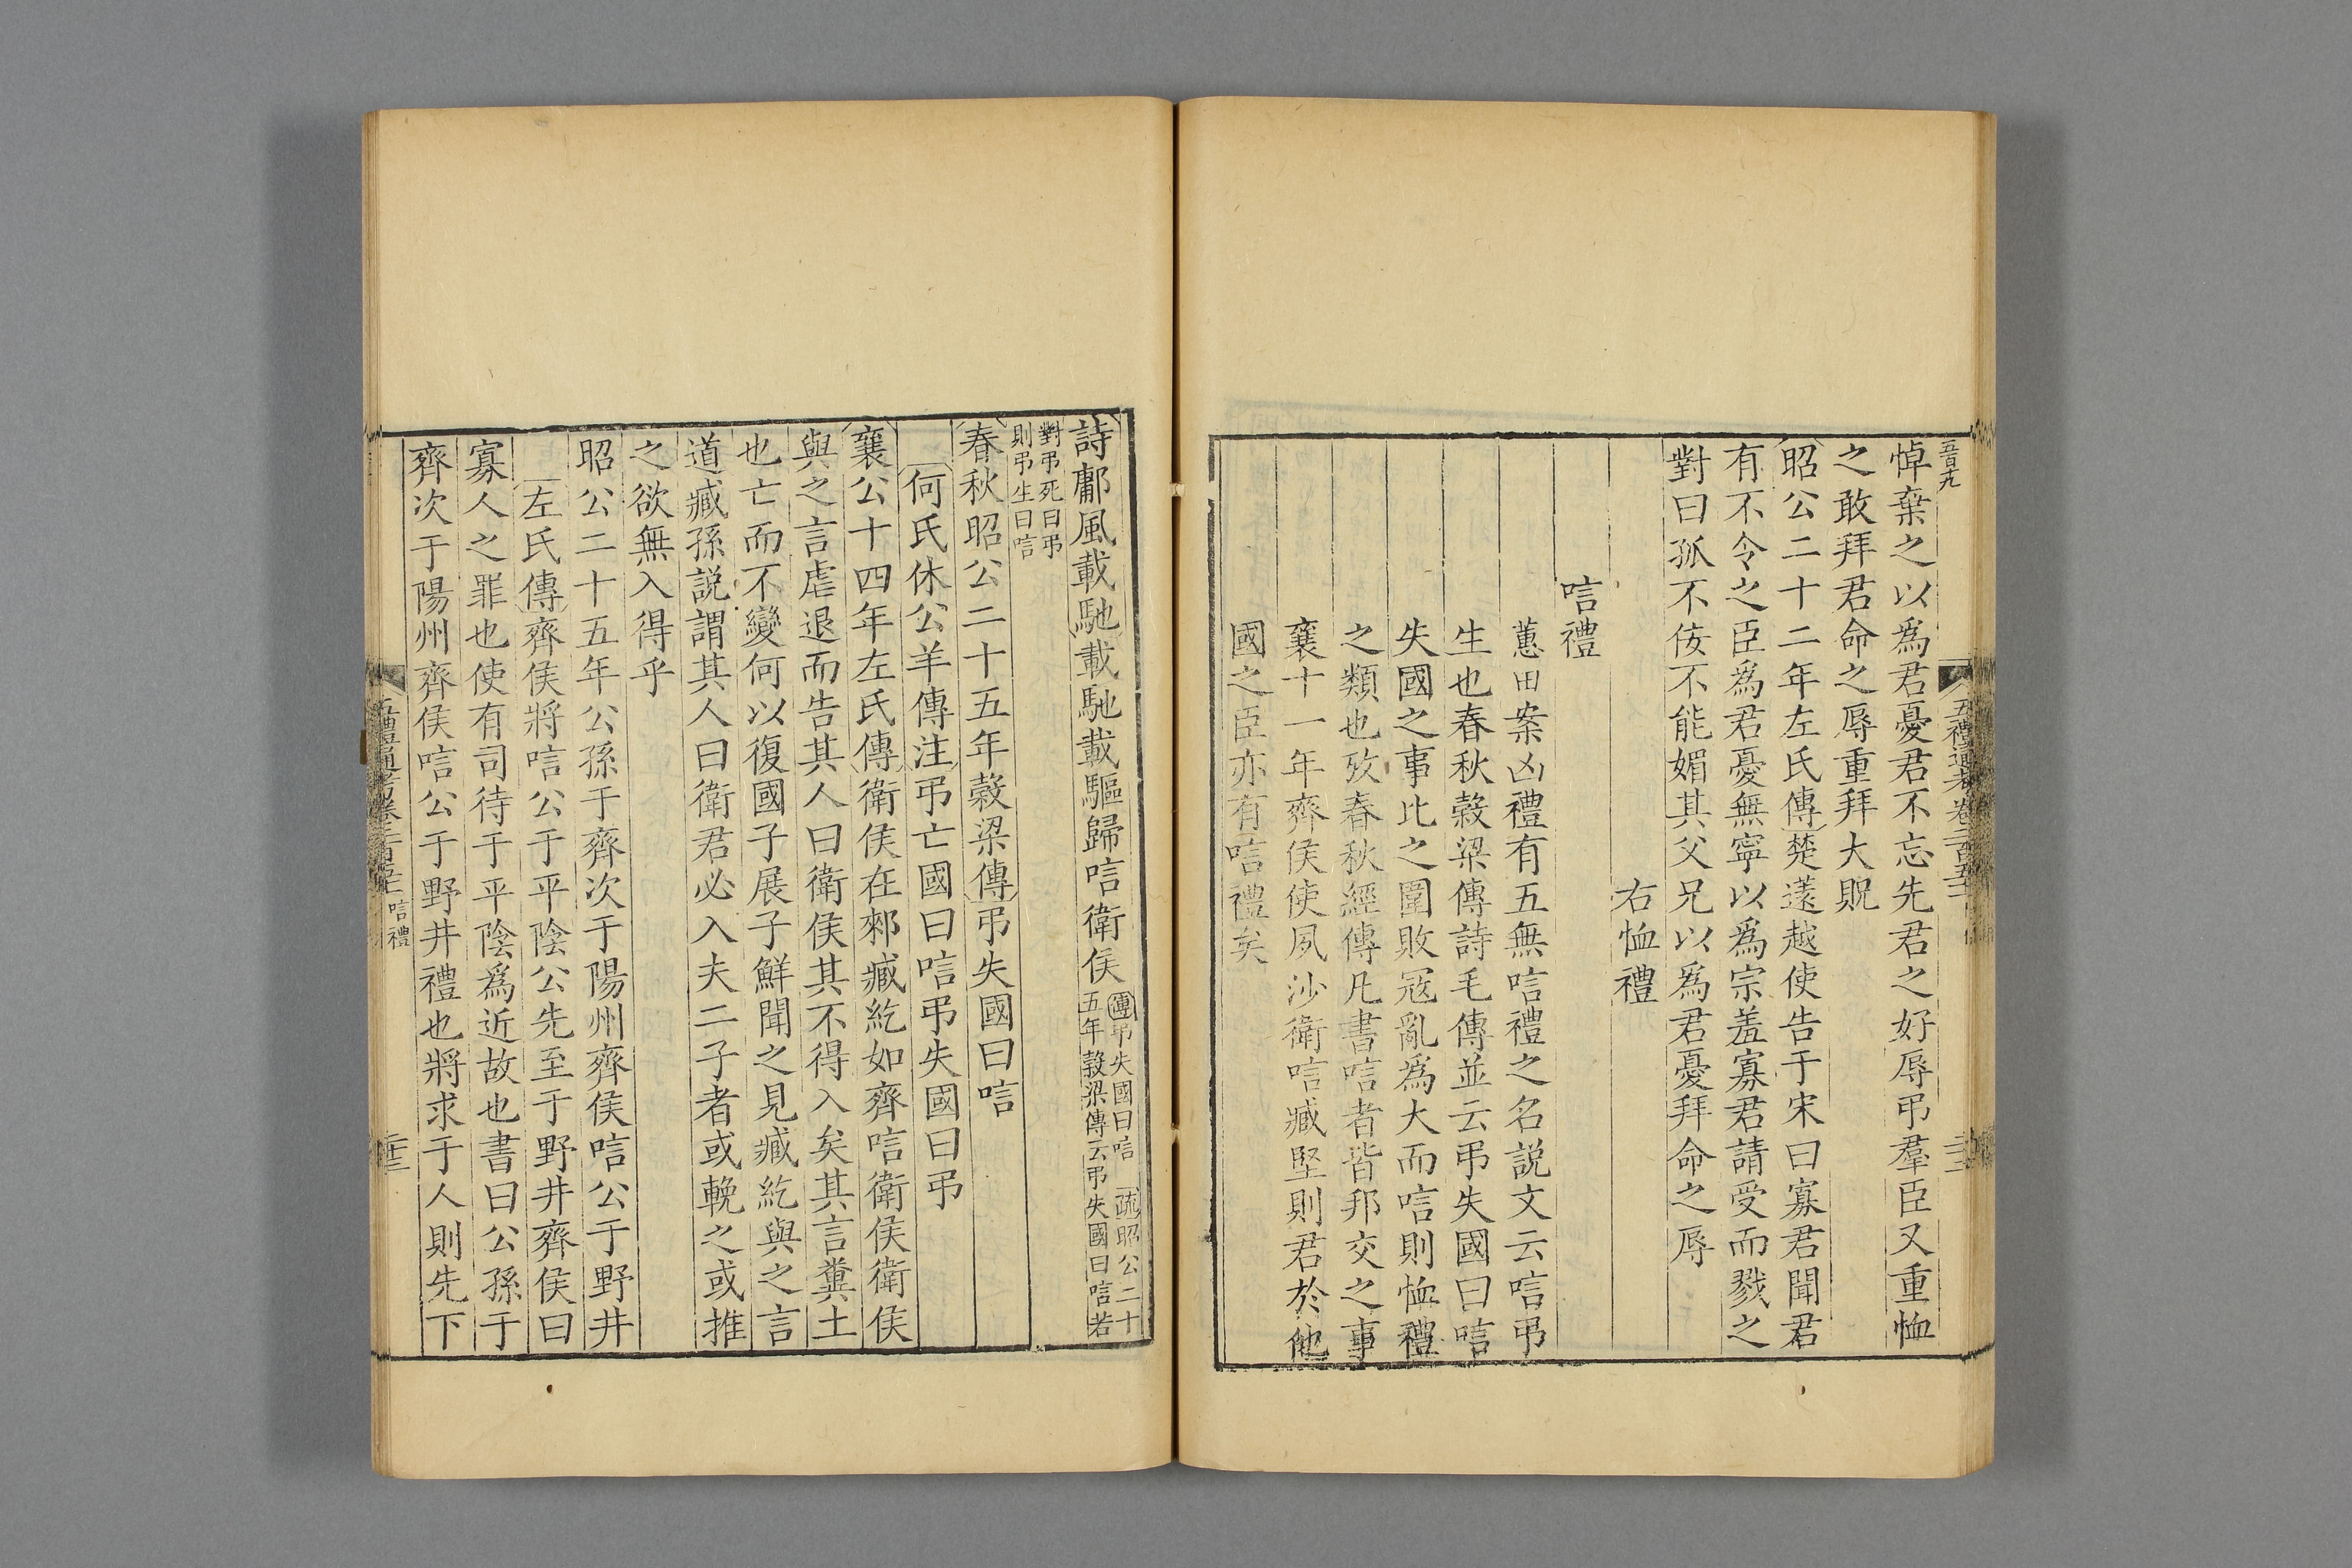 五百九
悼棄之以爲君憂君不忘先君之好辱弔羣臣又重恤
之敢拜君命之辱重拜大貺
昭公二十二年左氏傳楚薳越使告于宋曰寡君聞君
有不令之臣爲君憂無寧以爲宗羞寡君請受而戮之
對曰孤不佞不能媚其父兄以爲君憂拜命之辱
右恤禮
唁禮
蕙田案凶禮有五無唁禮之名說文云唁弔
生也春秋穀梁傳詩毛傳並云弔失國曰唁
失國之事比之圍敗寇亂爲大而唁則恤禮
之類也攷春秋經傳凡書唁者皆邦交之事
襄十一年齊侯使夙沙衛唁臧堅則君於他
國之臣亦有唁禮矣
詩鄘風載馳載馳載驅歸唁衛侯
傳弔失國曰唁 疏昭公二十
五年穀梁傳云弔失國曰唁若
對弔死曰弔
則弔生曰唁
春秋昭公二十五年穀梁傳弔失國曰唁
何氏休公羊傳注弔亡國曰唁弔失國曰弔
襄公十四年左氏傳衛侯在郲臧紇如齊唁衛侯衛侯
與之言虐退而告其人曰衛侯其不得入矣其言糞土
也亡而不變何以復國子展子鮮聞之見臧紇與之言
道臧孫說謂其人曰衛君必入夫二子者或輓之或推
之欲無入得乎
昭公二十五年公孫于齊次于陽州齊侯唁公于野井
左氏傳齊侯將唁公于平陰公先至于野井齊侯曰
寡人之罪也使有司待于平陰爲近故也書曰公孫于
齊次于陽州齊侯唁公于野井禮也將求于人則先下
唁禮